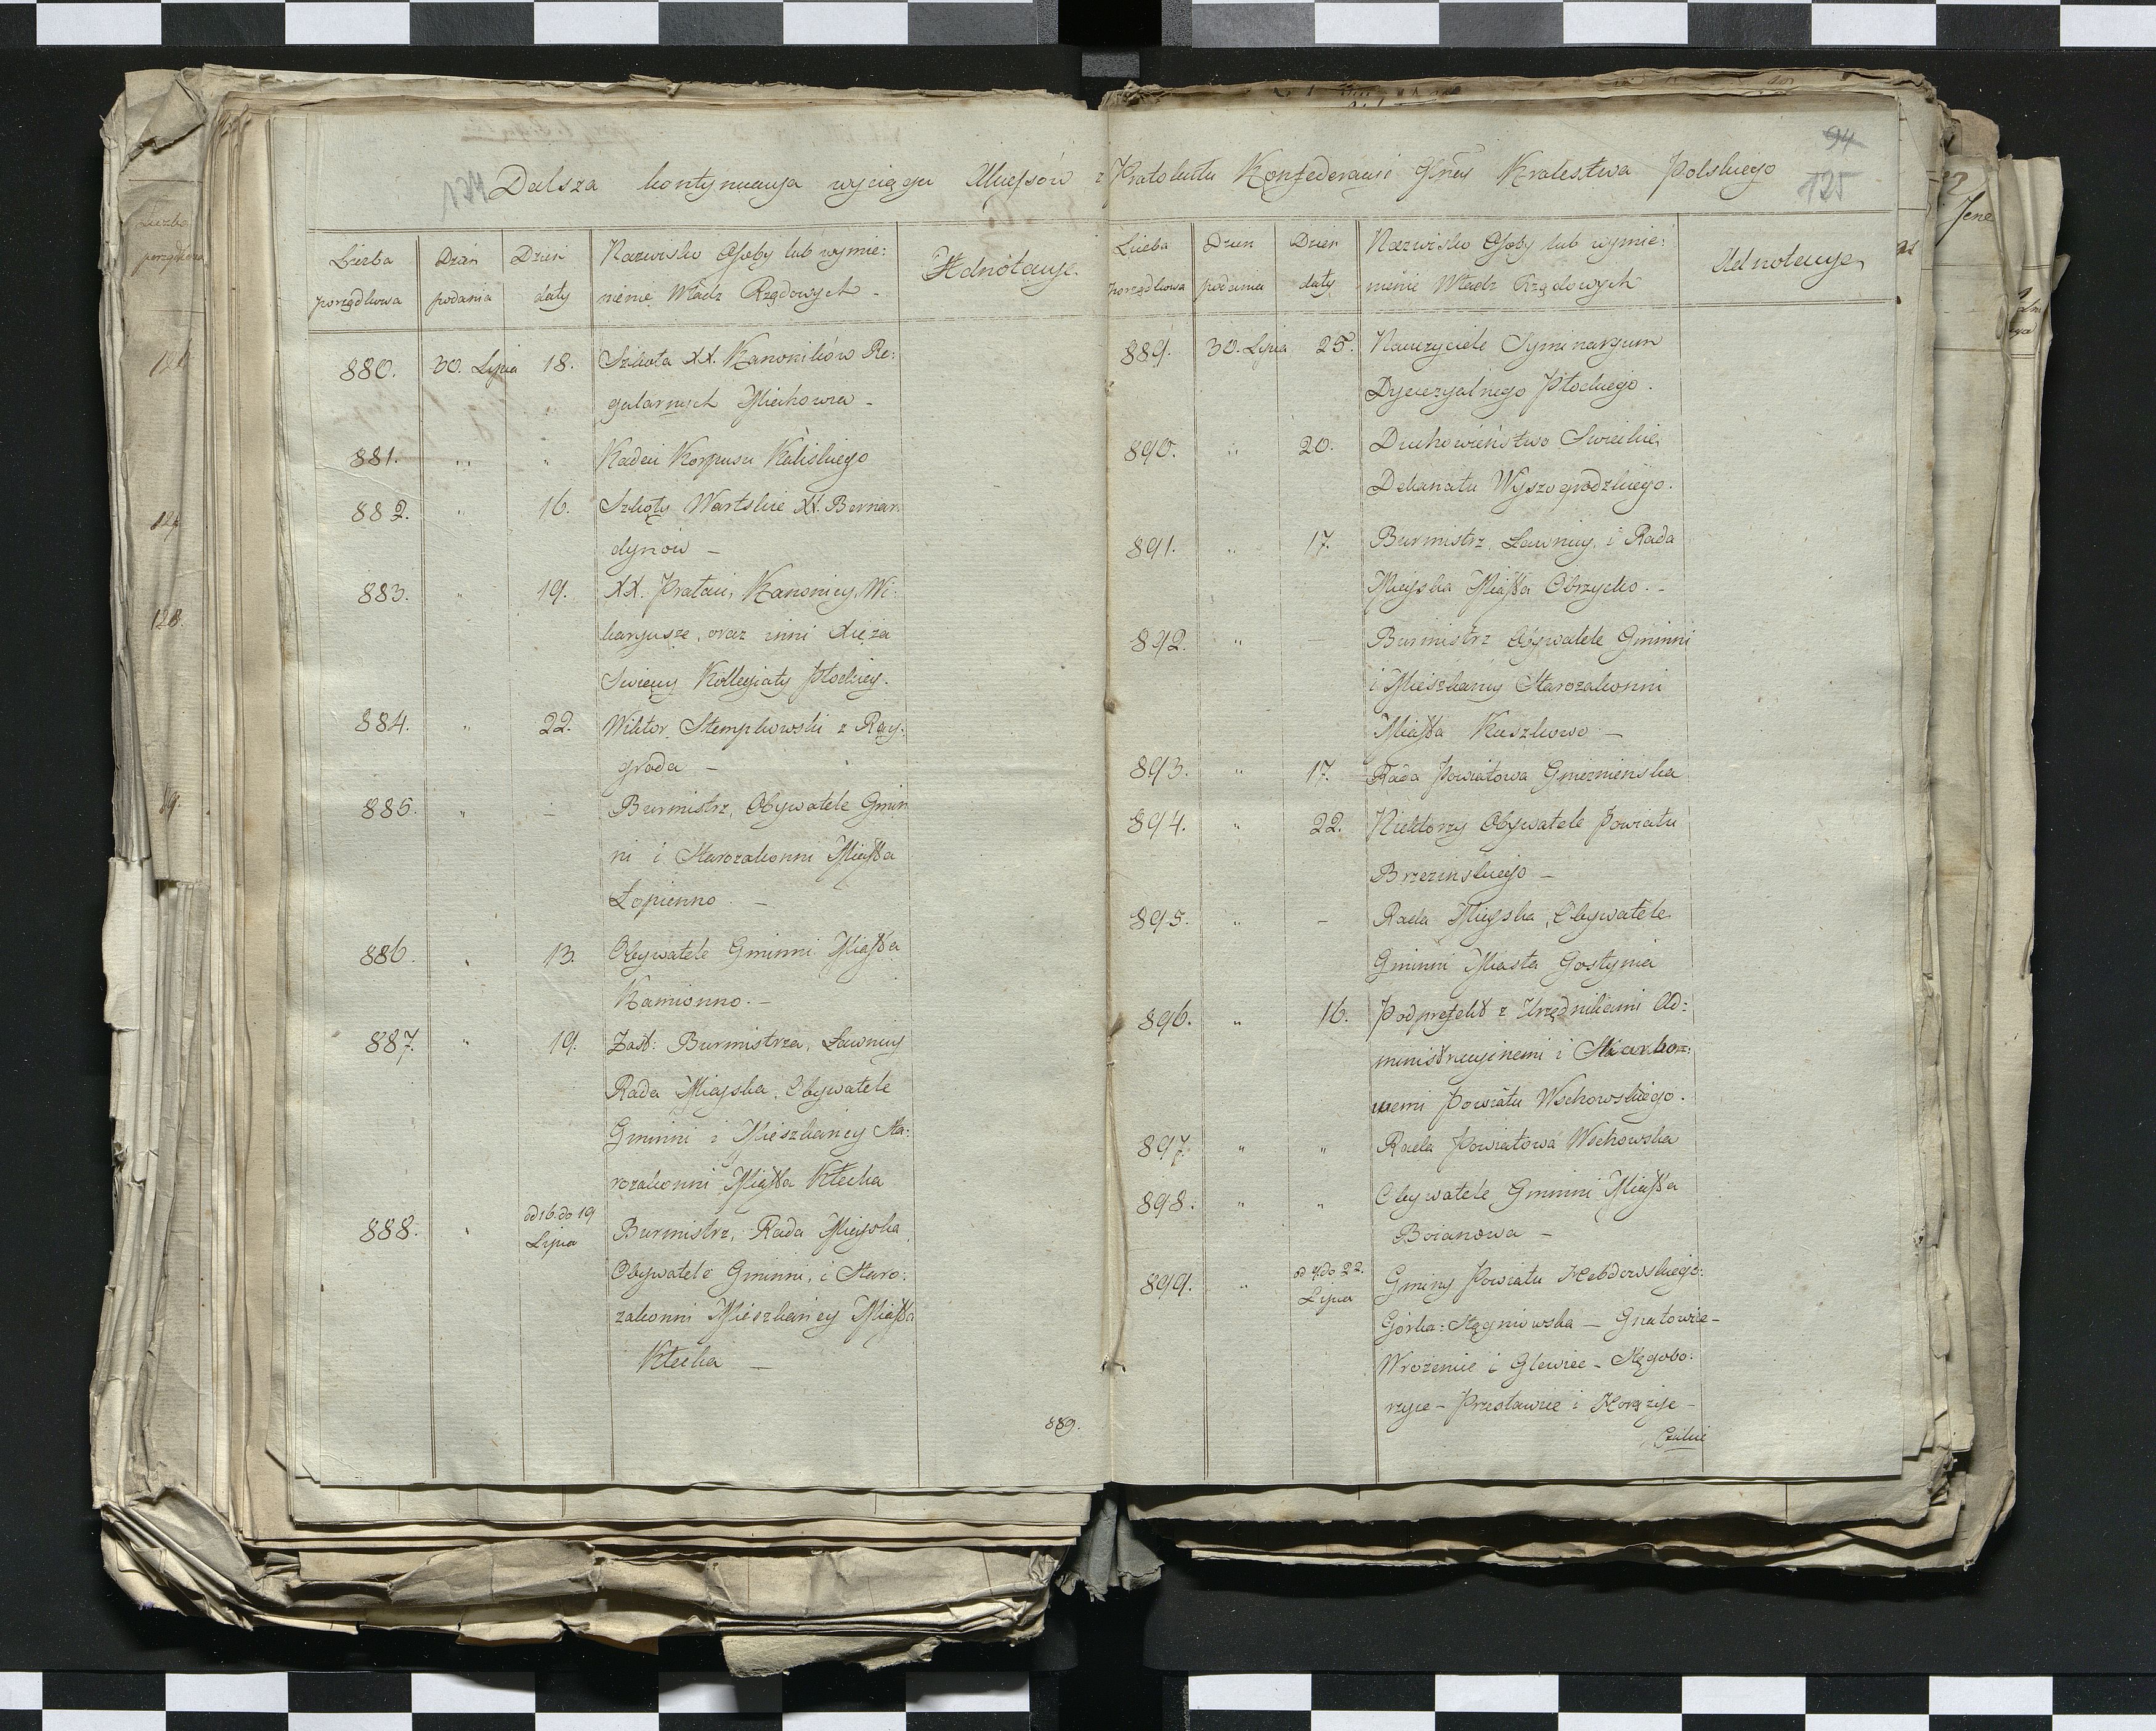 Dalsza kontynuacya wyciągu Akcessów z Protokułu Konfederacyi Głney Królestwa Polskiego
94
125
Liczba porządkowa
Dzień podania
Dzień daty
Nazwisko Osoby lub wymie:
nienie Władz Rządowych -
Adnotacye.
880. 30. Lipca 18. Szkoła XX. Kanoników Re:
gularnych Miechowa -
881. " " Kadeci Korpusu Kaliskiego
882. " 16. Szkoły Wartskie XX. Bernar
dynow -
883. " 19. XX. Prałaci, Kanonicy, Wi:
karyusze, oraz inni Xięża
Swiecey Kollegiaty Płockiey.
884. " 22. Wiktor Stempkowski z Ray:
groda -
885. " - Burmistrz, Obywatele Gmin
ni i Starozakonni Miasta
Łopienno -
886. " 13. Obywatele Gminni Miasta
Kamionno. -
887. " 19. Zast: Burmistrza, Ławnicy
Rada Mieyska, Obywatele
Gminni i Mieszkańcy Sta:
rozakonni Miasta Kłecka
888. " od 16. do 19 Lipca Burmistrz, Rada Mieyska,
Obywatele Gminni, i Staro:
zakonni Mieszkańcy Miasta
Kłecka -
889.
Liczba porządkowa
Dzień podania
Dzień daty
Nazwisko Osoby lub wymie:
nienie Władz Rządowych
Adnotacye
889. 30. Lipca 25. Nauczyciele Syminaryum
Dyecezyalnego Płockiego.
890. " 20. Duchowieństwo Swieckie
Dekanatu Wyszogrodzkiego.
891. " 17. Burmistrz, Ławnicy, i Rada
Mieyska Miasta Obrzycko. -
892. " - Burmistrz Obywatele Gminni
i Mieszkańcy Starozakonni
Miasta Kuszkowo -
893. " 17. Rada Powiatowa Gnieznienska
894. " 22. Niektorzy Obywatele Powiatu
Brzezinskiego -
895. " - Rada Mieyska, Obywatele
Gminni Miasta Gostynia
896. " 16. Podprefekt z Urzędnikami Ad:
ministracyinemi i Skarbo=
wemi Powiatu Wschowskiego.
897. " " Rada Powiatowa Wschowska
898. " " Obywatele Gminni Miasta
Boianowa -
899. " od 9. do 22. Lipca Gminy Powiatu Hebdowskiego:
Gorka: Stęgniowska - Gnatowice -
Wrożenice i Glewiec - Stęgobo:
rzyce - Przesławice i Koryzje -
Czulice